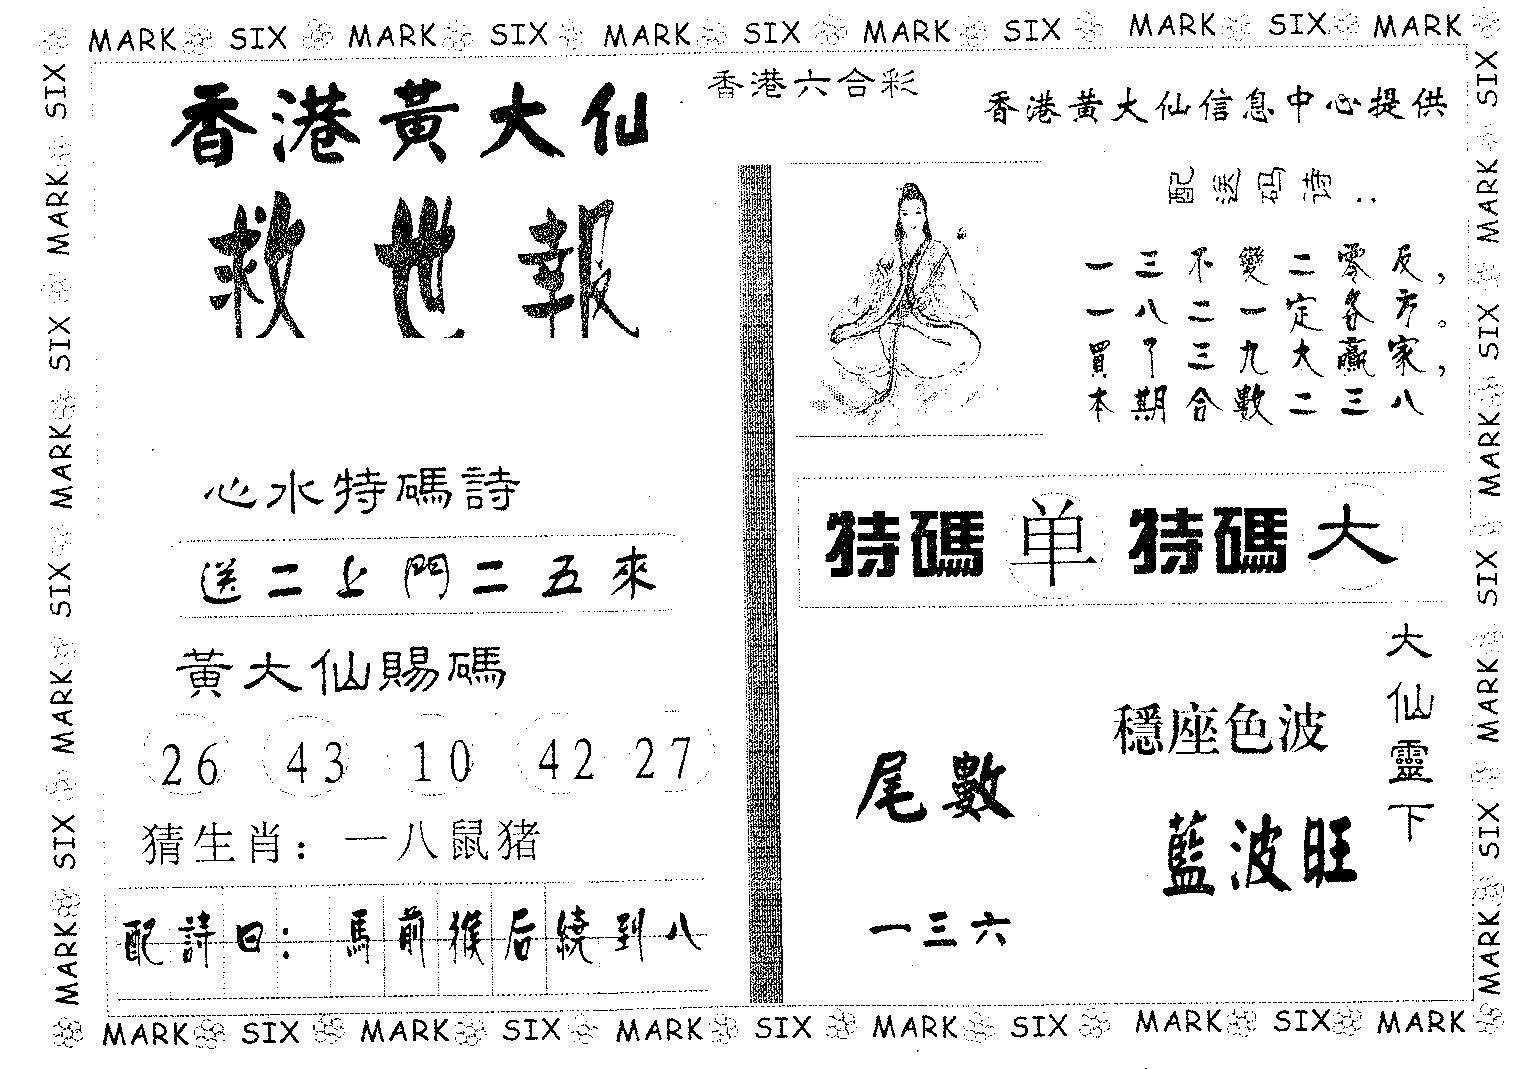 MARK SIX MARK SIX MARK SIX MARK SIX MARK SIX MARK
香港六合彩
香港黃大仙
救世報
香港黃大仙信息中心提供
配送码诗:
一三不變二零反,
一八二一定各方。
買了三九大贏家,
本期合數二三八
心水特碼詩
送二上門二五來
特碼单特碼大
黃大仙賜碼
26 43 10 42 27
猜生肖:一八鼠猪
配詩曰:馬前猴后繞到八
尾數
一三六
穩座色波
藍波旺
大仙靈下
SIX MARK SIX MARK SIX MARK SIX MARK
SIX MARK SIX MARK SIX MARK SIX MARK
MARK SIX MARK SIX MARK SIX MARK SIX MARK SIX MARK